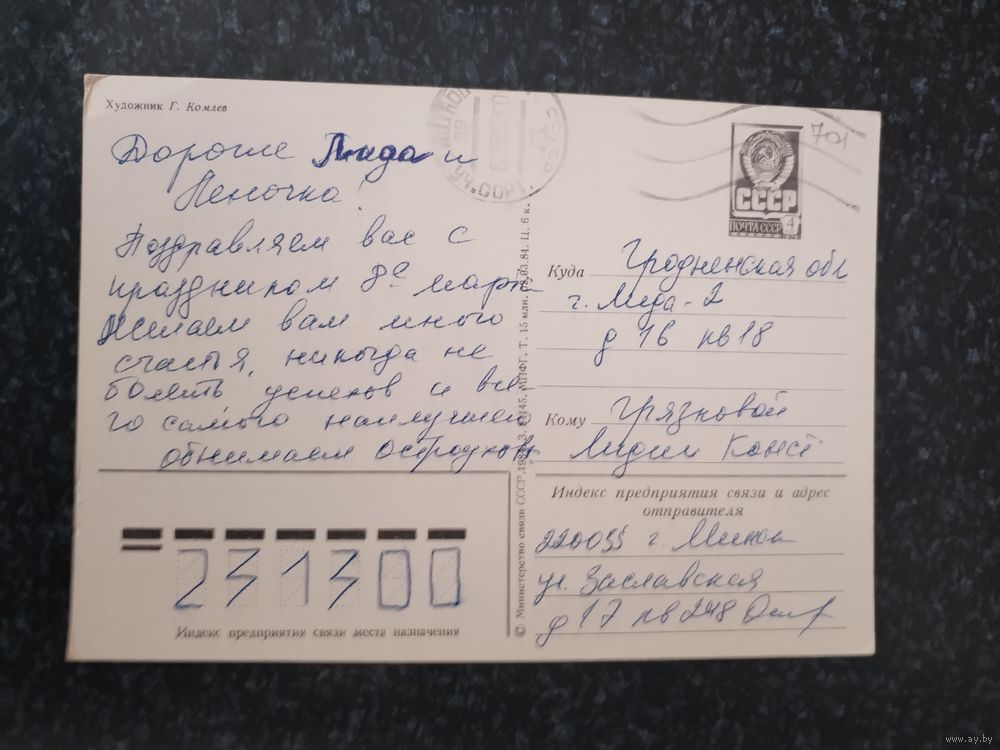 Художник Г. Комлев
Дорогие Лида и
Леночка!
Поздравляем вас с
праздником 8е марта
Желаем вам много
счастья, никогда не
болеть, успехов и все-
го самого наилучшего
обнимаем
СССР
ПОЧТА СССР
4
701
Куда Гродненская обл
г. Лида-2
д 16 кв 18
Кому Грязновой
Лидии Конст
Индекс предприятия связи и адрес
отправителя
г. Минск
ул. Заславская
д 17 кв 248
231300
Индекс предприятия связи места назначения
© Министерство связи СССР.
МПФГ. Т. 15 млн.
03.84. Ц. 6 к.
www.ay.by